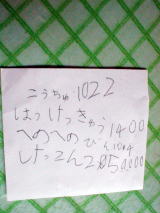 こうちゅ1022
はっけっきゅう1400
へのへのびん1014
けっこん2850,000